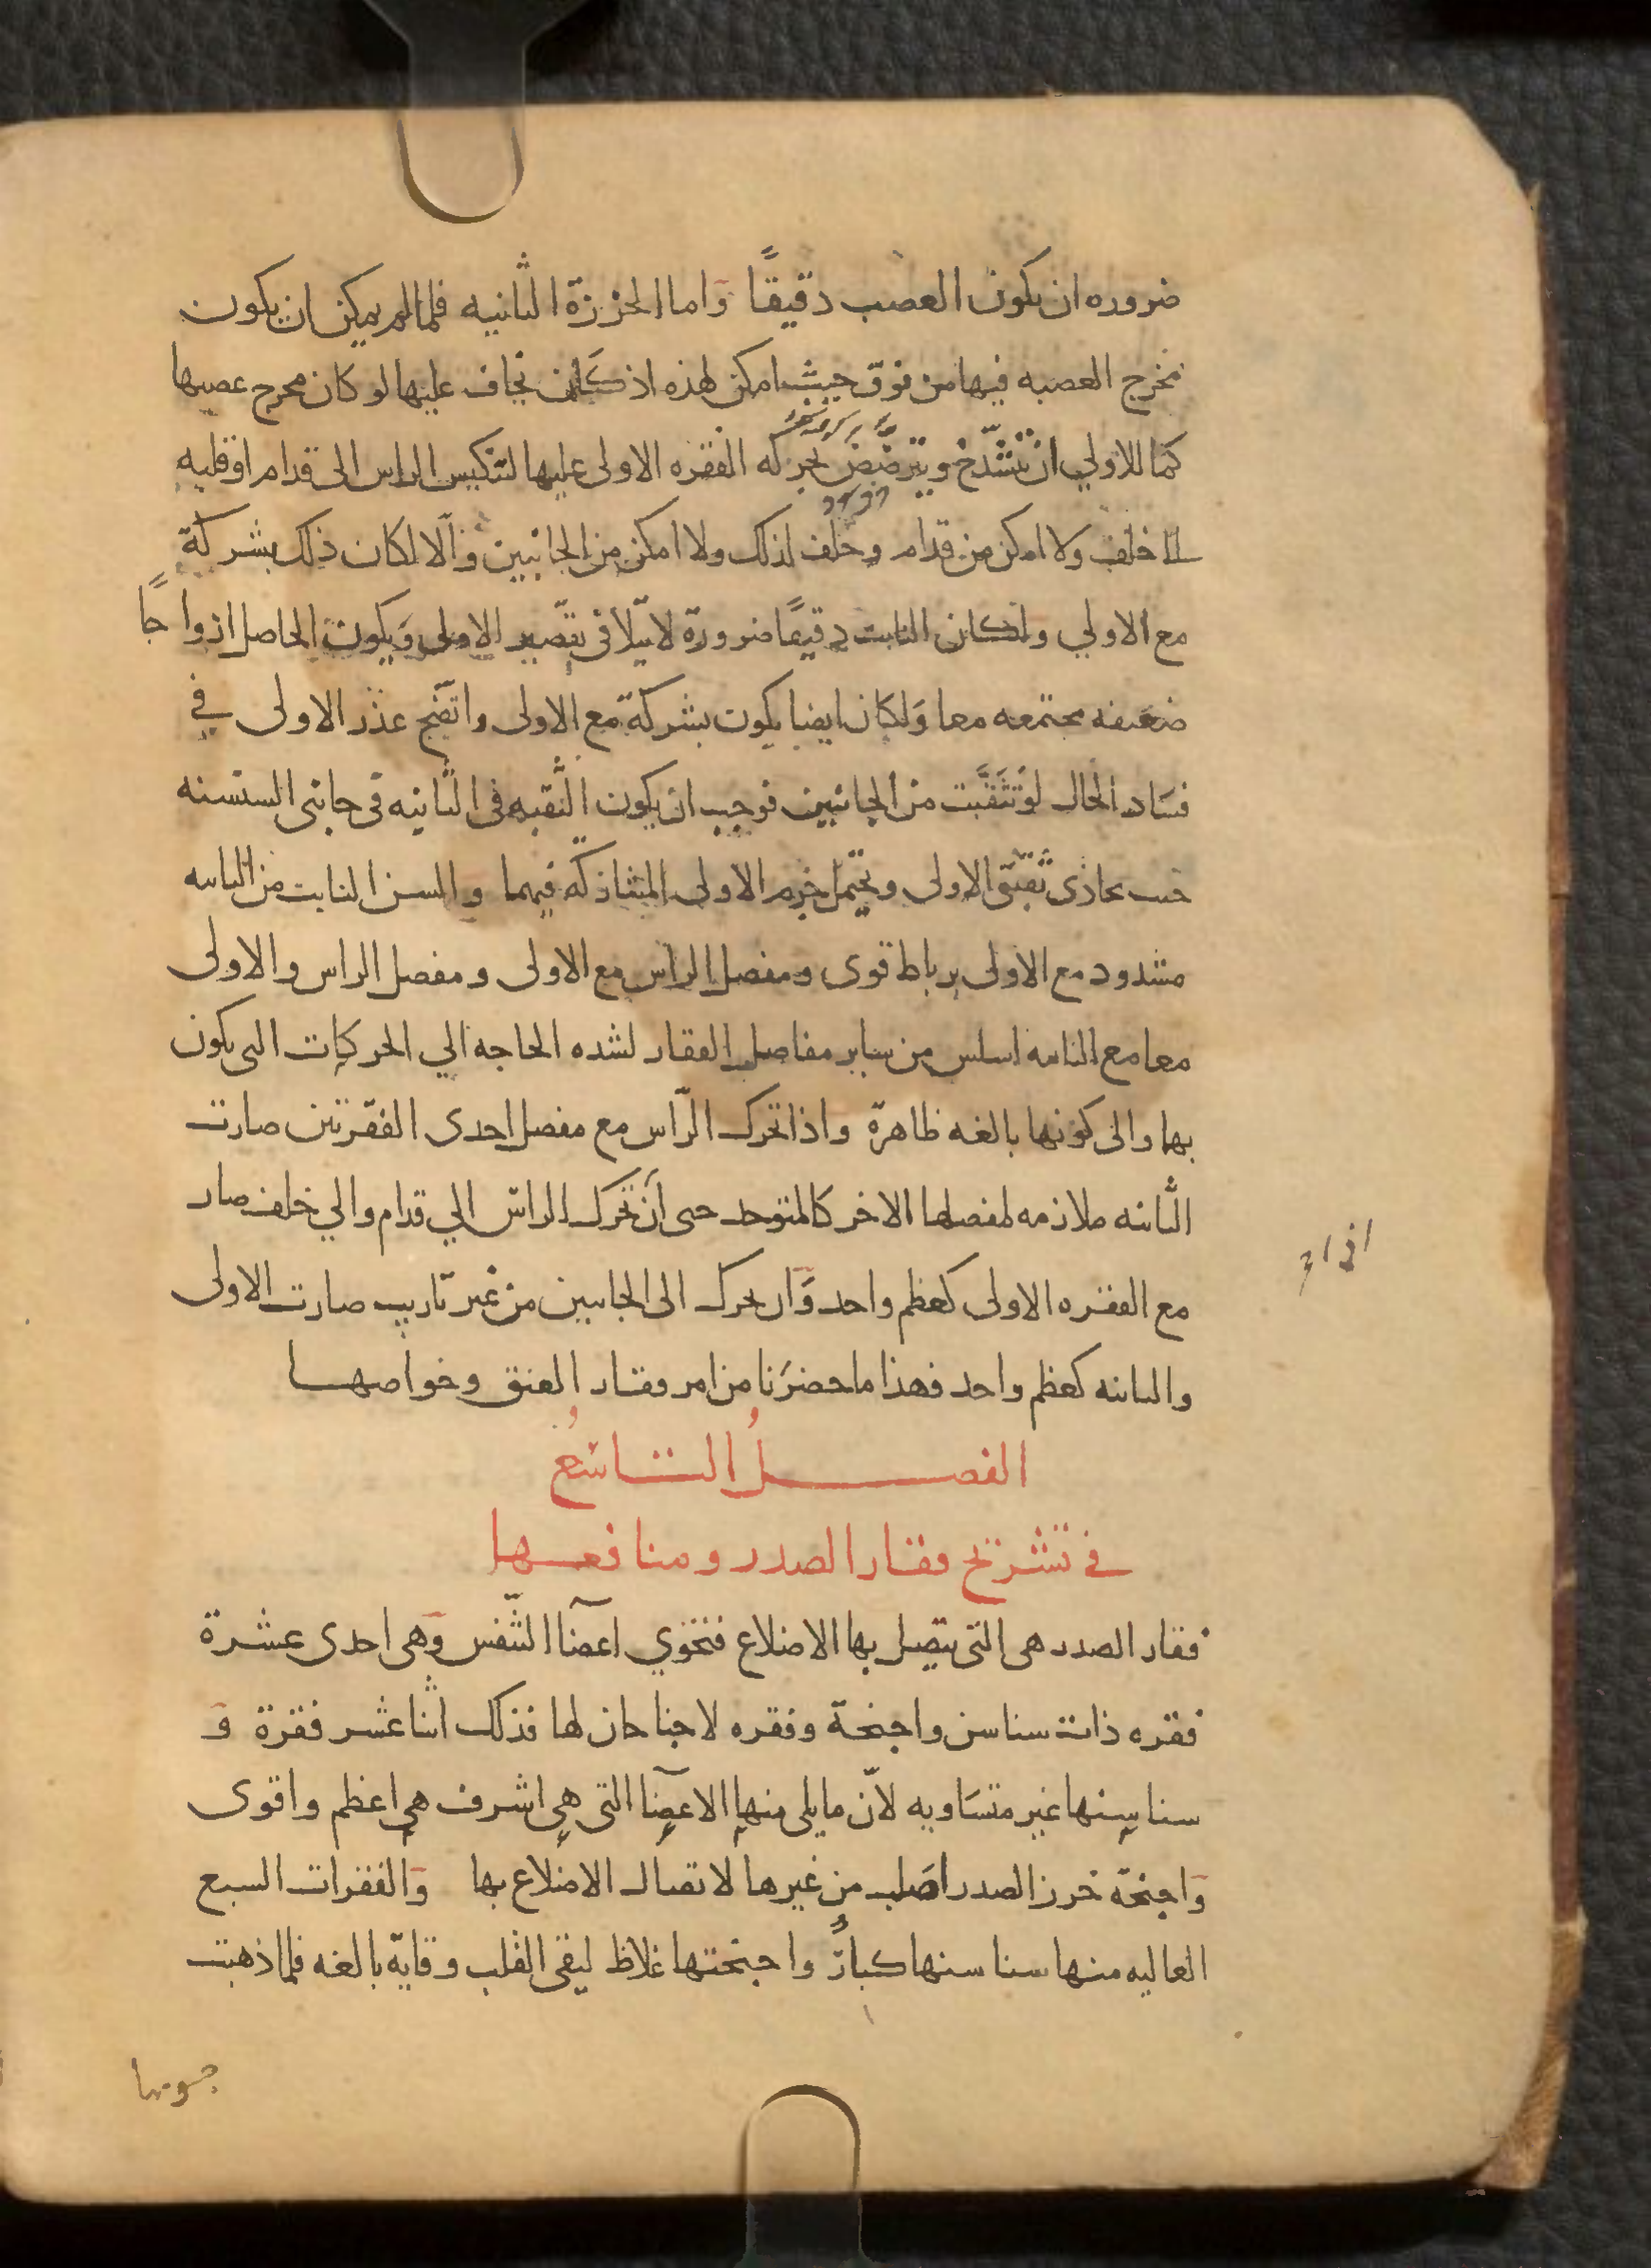 ضروره ان يكون العصب دقيقًا وَاما الخرزة الثانيه فلما لم يمكن ان يكون
مخرج العصبه فيها من فوق حيث امكن لهذه اذ كان يخاف عليها لو كان مخرج عصبها
كما للاولي ان تنشدّخ ويترضّض بحركه الفقره الاولى عليها لتنكيس الراس الى قدام او قلبه
الا خلف ولا امكن من قدام وخلف لذلك ولا امكن من الجانبين والّا لكان ذلك بشركة
مع الاولي ولكان النابت دقيقًا ضرورة لا يتلافى تقصير الاولى وَيكون الحاصل ازواجًا
ضعيفه مجتمعه معا وَلكان ايضا يكون بشركة مع الاولى واتضح عذر الاولى في
فسَاد الحال لوتثقّبت من الجانبين فوجب ان يكون الثقبه في الثانيه في جانبى السنسنه
حيث يحاذى ثقبتى الاولى ويحتمل جرم الاولى المشاركه فيهما والسن النابت من الثانيه
مشدود مع الاولى برباط قوى ومفصل الراس مع الاولى ومفصل الراس والاولى
معا مع الثانيه اسلس من ساير مفاصل الفقار لشده الحاجه الي الحركات التى يكون
بها والى كونها بالغه ظاهرة واذا تحرك الرّاس مع مفصل احدى الفقرتين صارت
الثانيه ملازمه لمفصلها الاخر كالمتوحد حتى ان تحرك الراس الي قدام والي خلف صار
مع الفقره الاولى كعظم واحد وَان تحرك الى الجانبين من غير تاريب صارت الاولى
والثانيه كعظم واحد فهذا ما حضرَنا من امر فقار العنق وخواصها
الفصلُ التاسعُ
في تشريح فقار الصدر ومنافعها
فقار الصدر هى التى يتصل بها الاضلاع فتحوي اعضآ التنّفس وَهى احدى عشرة
فقره ذات سناسن واجنحة وفقره لا جناحان لها فذلك اثنا عشر فقرة وَ
سناسنها غير متسَاويه لاّن ما يلى منها الاعضآ التى هي اشرف هي اعظم واقوى
وَاجنحة خرز الصدر اصَلب من غيرها لاتصال الاضلاع بها وَالفقرات السبع
العاليه منها سناسنها كبارٌ واجنحتها غلاظ ليقى القلب وقاية بالغه فلما ذهبت